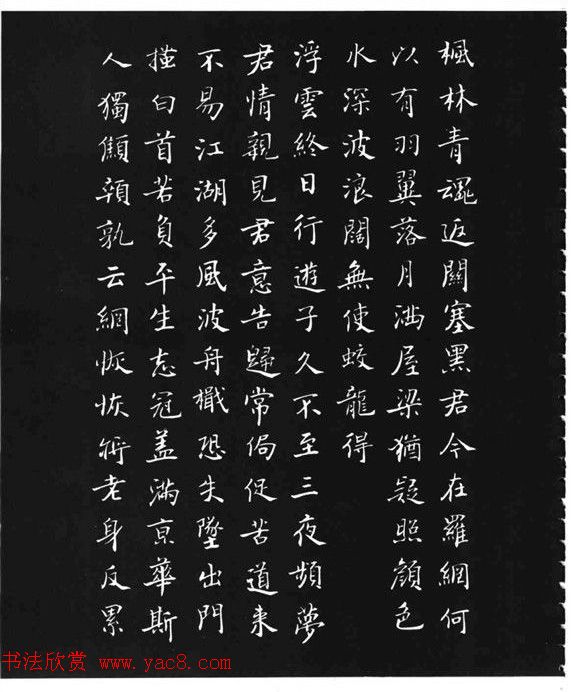 楓林青魂返關塞黑君今在羅網何
以有羽翼落月滿屋梁猶疑照顏色
水深波浪闊無使蛟龍得
浮雲終日行遊子久不至三夜頻夢
君情親見君意告歸常侷促苦道来
不易江湖多風波舟檝恐失墜出門
搔白首若負平生志冠盖滿京華斯
人獨顦顇孰云網恢恢將老身反累
书法欣赏 www.yac8.com